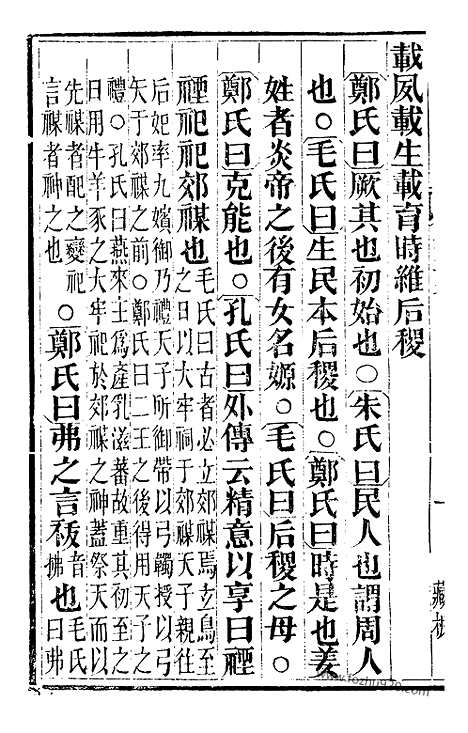 載夙載生載育時維后稷
鄭氏曰厥其也初始也○朱氏曰民人也謂周人
也○毛氏曰生民本后稷也○鄭氏曰時是也姜
姓者炎帝之後有女名嫄○毛氏曰后稷之母○
鄭氏曰克能也○孔氏曰外傳云精意以享曰禋
禋祀祀郊禖也毛氏曰古者必立郊禖焉玄鳥至
之日以大牢祠于郊禖天子親往
后妃率九嬪御乃禮天子所御帶以弓韣授以弓
矢于郊禖之前○鄭氏曰二王之後得用天子之
禮○孔氏曰燕來主爲產乳滋蕃故重其初至之
日用牛羊豕之大牢祀於郊禖之神蓋祭天而以
先禖者配之變祀
言禖者神之也
○鄭氏曰弗之言祓音拂也毛氏
曰弗
藏
www.fozhu920.com